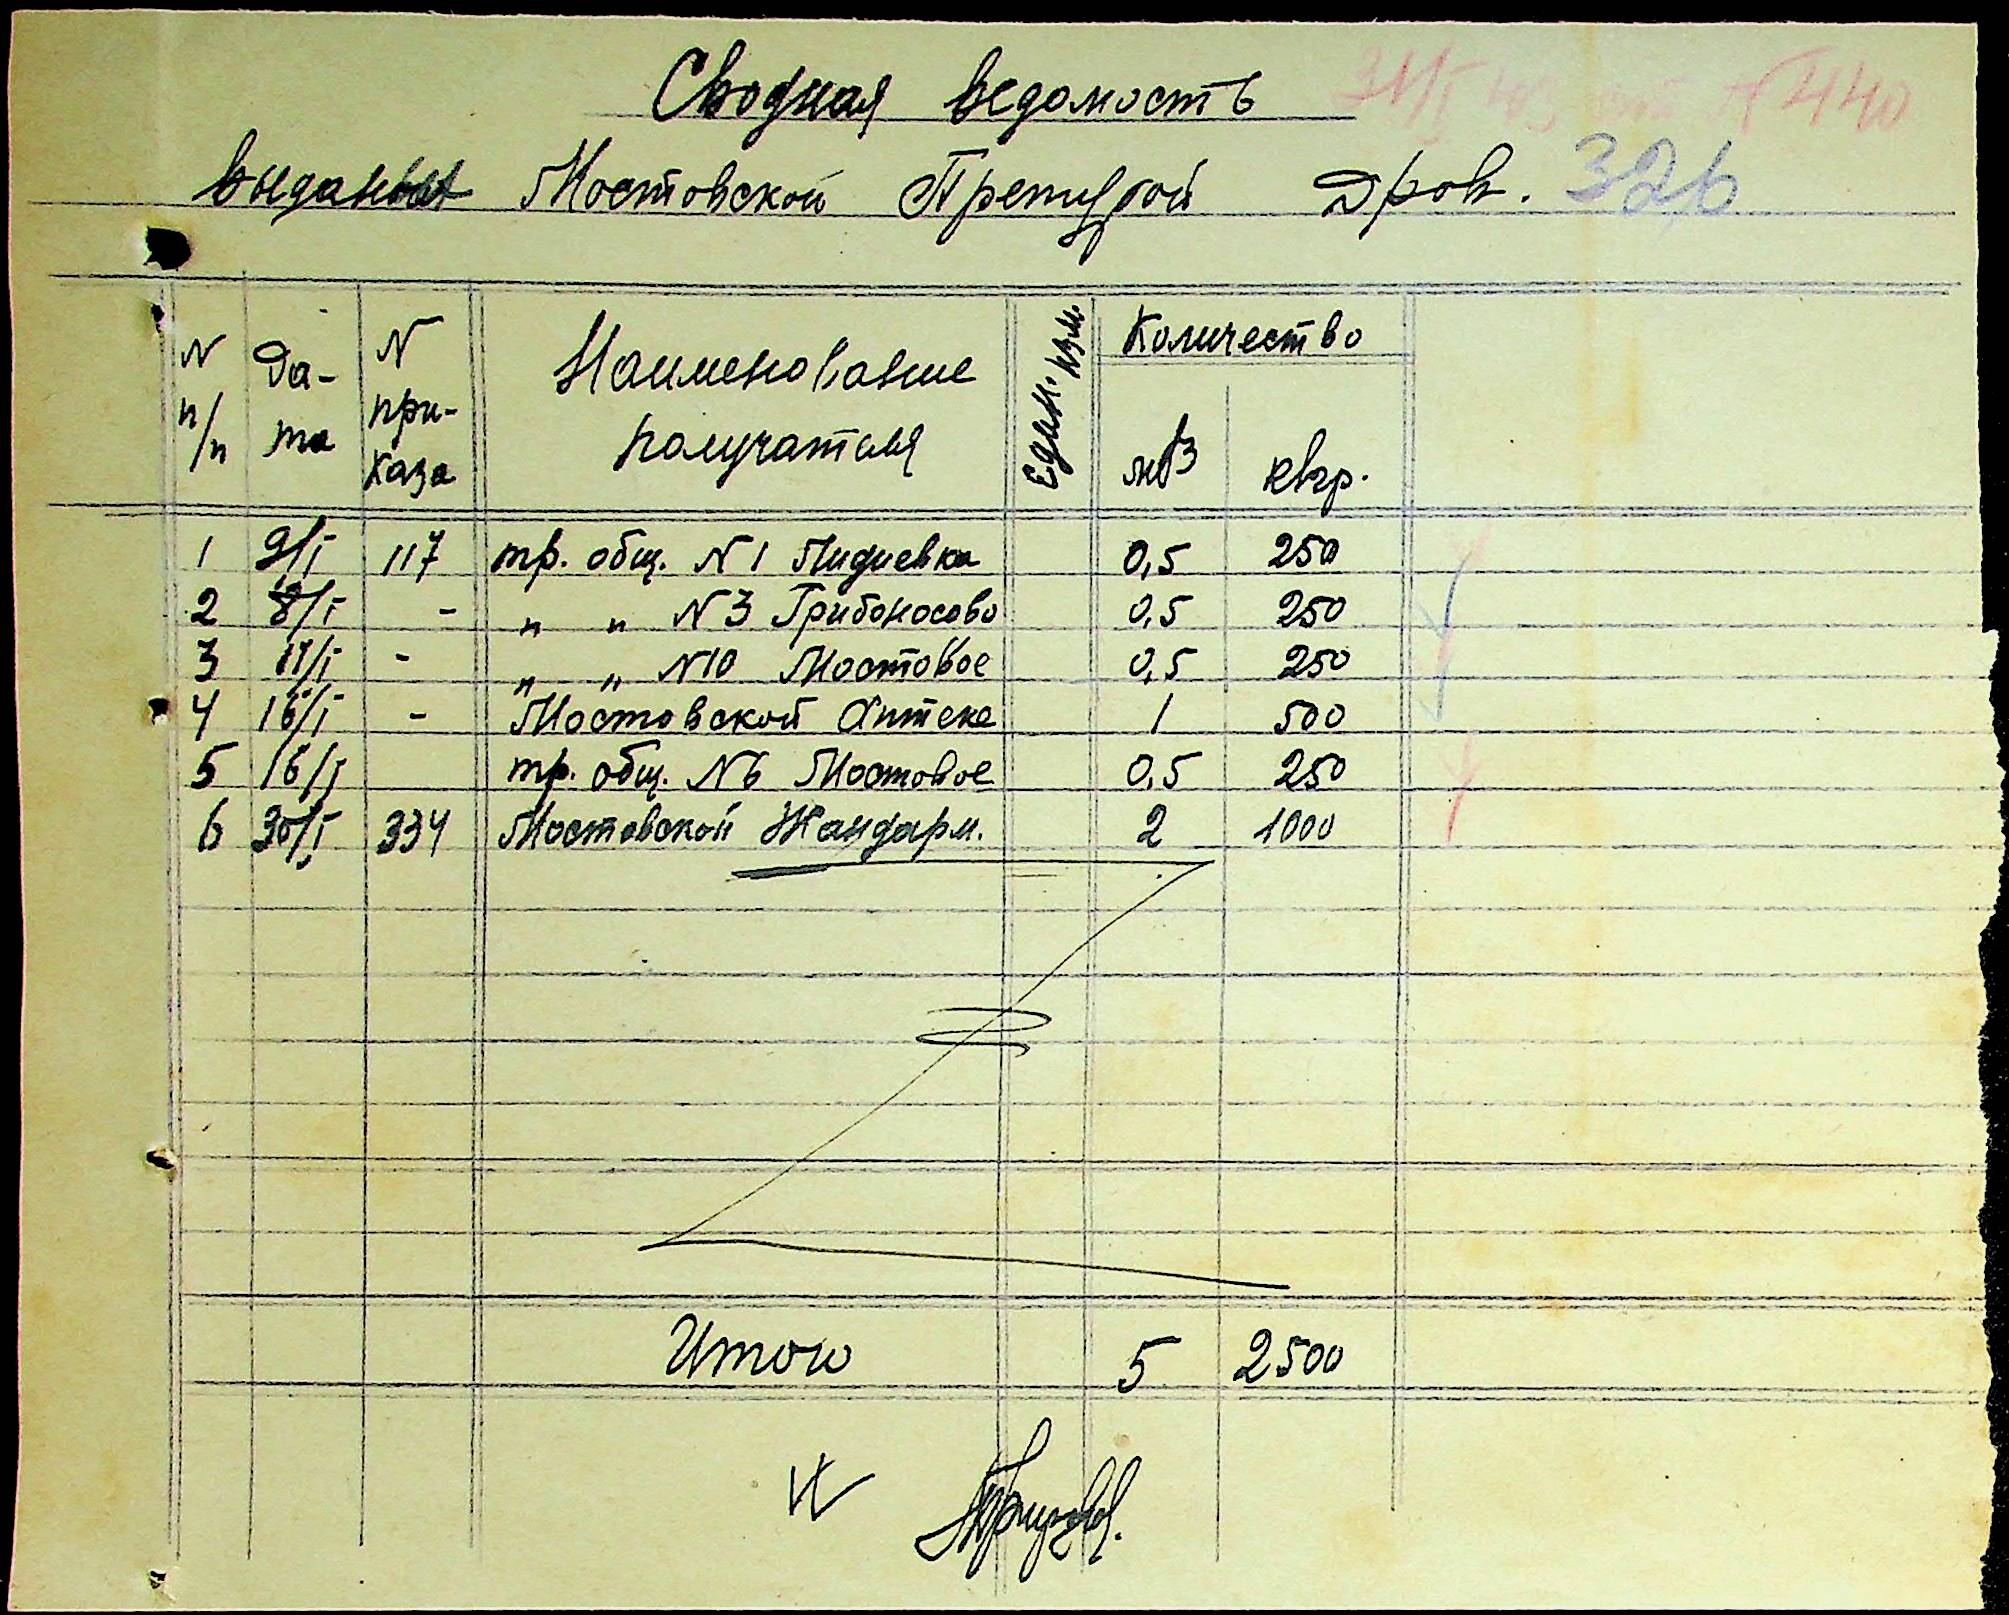 Сводная ведомость
выданных Мостовской Претурой Дров. 32,6
N п/п Да-та N при-каза Наименование получателя Един. изм. Количество
м3 квгр.
1 9/I 117 тр. общ. N 1 Лидиевка 0,5 250
2 8/I - " " N 3 Грибоносово 0,5 250
3 11/I - " " N10 Мостовое 0,5 250
4 16/I - Мостовской Аптеке 1 500
5 16/I тр. общ. N6 Мостовое 0,5 250
6 30/I 334 Мостовской Жандарм. 2 1000
Итого 5 2500